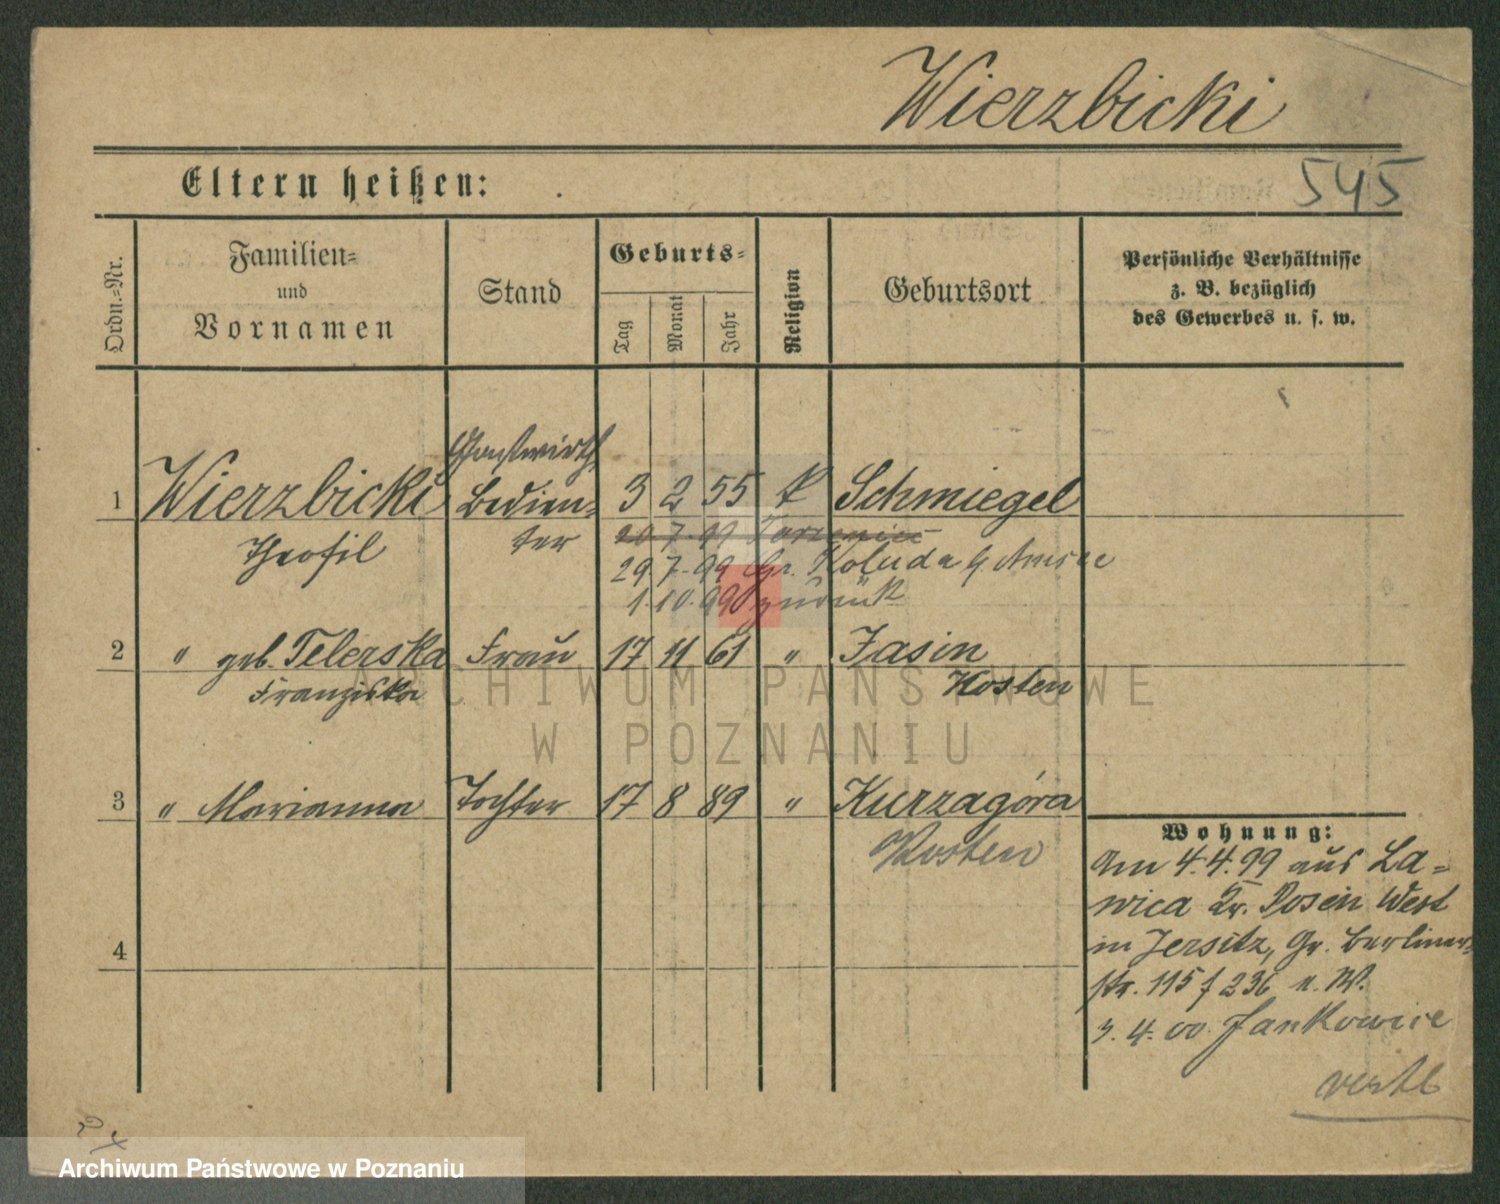 Wierzbicki
545
Eltern heißen:
Ordn.-Nr.
Familien-
und
Vornamen
Stand
Geburts-
Tag
Monat
Jahr
Religion
Geburtsort
Persönliche Verhältnisse
z. B. bezüglich
des Gewerbes u. s. w.
Gastwirth
1 Wierzbicki Bedien- 3 2 55 k Schmiegel
Theofil ter 20 7. 99
29 7. 99 Gr. Koluda
1. 10. 99 zurück
2 " geb. Telerska Frau 17 11 61 " Jasin
Franziska Kosten
3 " Marianna Tochter 17 8 89 " Kurzagóra
Kosten
4
Wohnung:
Am 4. 4. 99 aus La-
wica Kr. Posen West
in Jersitz, Gr. Berliner-
str. 115 f 236 n. W.
3. 4. 00. Jankowice
ARCHIWUM PAŃSTWOWE
W POZNANIU
Archiwum Państwowe w Poznaniu